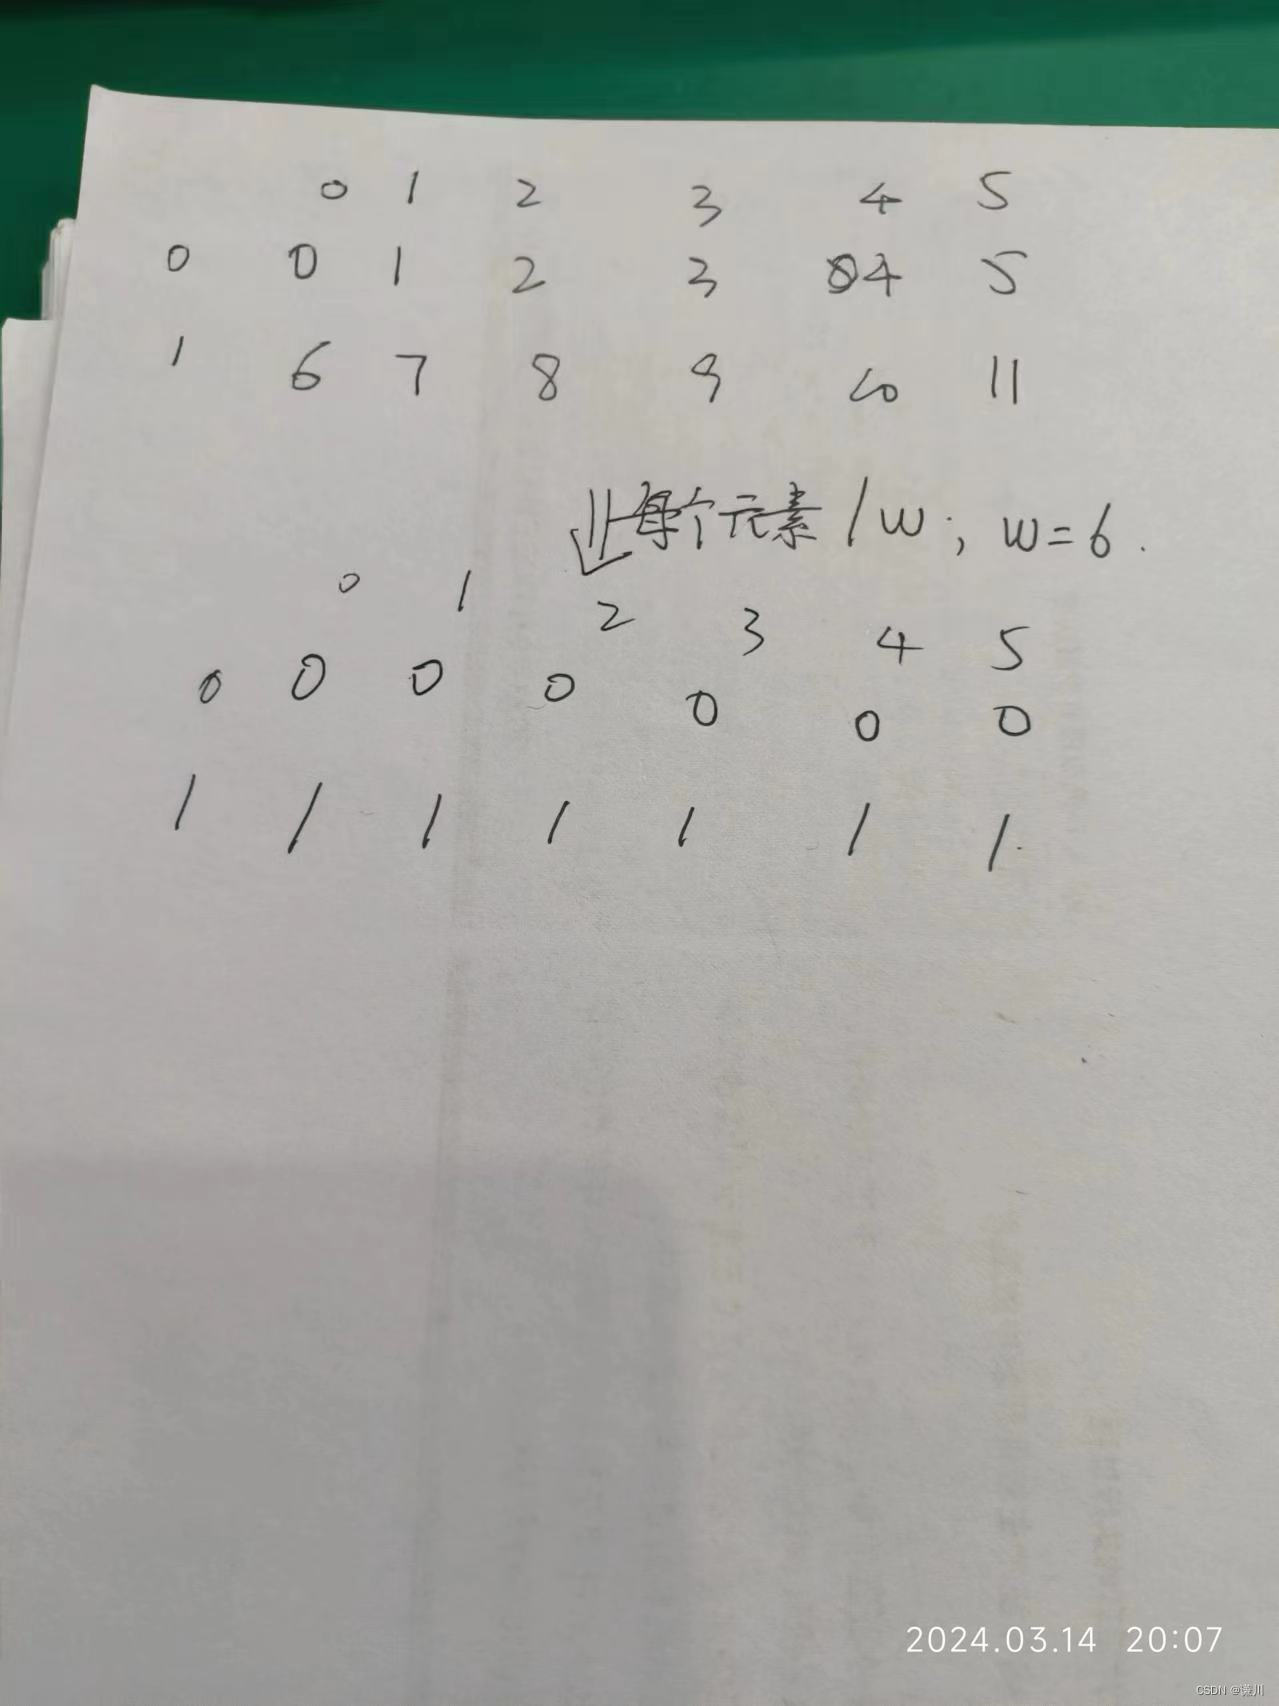 0 1 2 3 4 5
0 0 1 2 3 4 5
1 6 7 8 9 10 11
每个元素 / w; w=6.
0 1 2 3 4 5
0 0 0 0 0 0 0
1 1 1 1 1 1 1.
2024.03.14 20:07
CSDN @谎川